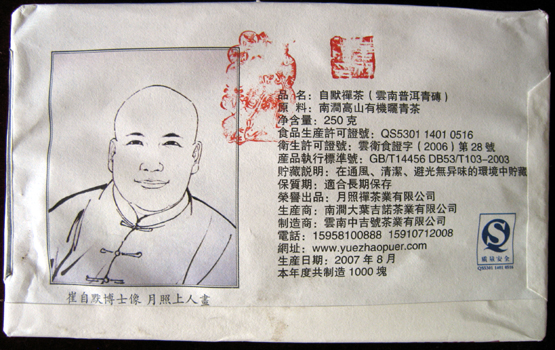 品名：自默禪茶（雲南普洱青磚）
原料：南澗高山有機曬青茶
净含量：250克
食品生産許可證號：QS5301 1401 0516
衛生許可證號：雲衛食證字（2006）第28號
産品執行標準號：GB/T14456 DB53/T103-2003
貯藏説明：在通風、清潔、避光無异味的環境中貯藏
保質期：適合長期保存
榮譽出品：月照禪茶業有限公司
生産商：南澗大葉吉諾茶業有限公司
制造商：雲南中吉號茶業有限公司
電話：15958100888 15910712008
網址：www.yuezhaopuer.com
生産日期：2007年8月
本年度共制造1000塊
質量安全
QS5301 1401 0516
崔自默博士像 月照上人畫